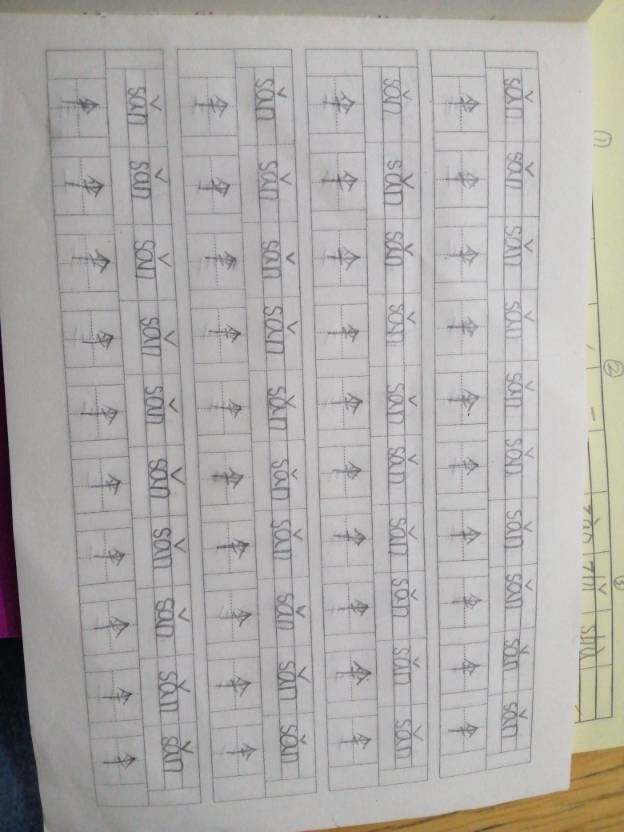 sǎn sǎn sǎn sǎn sǎn sǎn sǎn sǎn sǎn sǎn
伞 伞 伞 伞 伞 伞 伞 伞 伞 伞
sǎn sǎn sǎn sǎn sǎn sǎn sǎn sǎn sǎn sǎn
伞 伞 伞 伞 伞 伞 伞 伞 伞 伞
sǎn sǎn sǎn sǎn sǎn sǎn sǎn sǎn sǎn sǎn
伞 伞 伞 伞 伞 伞 伞 伞 伞 伞
sǎn sǎn sǎn sǎn sǎn sǎn sǎn sǎn sǎn sǎn
伞 伞 伞 伞 伞 伞 伞 伞 伞 伞